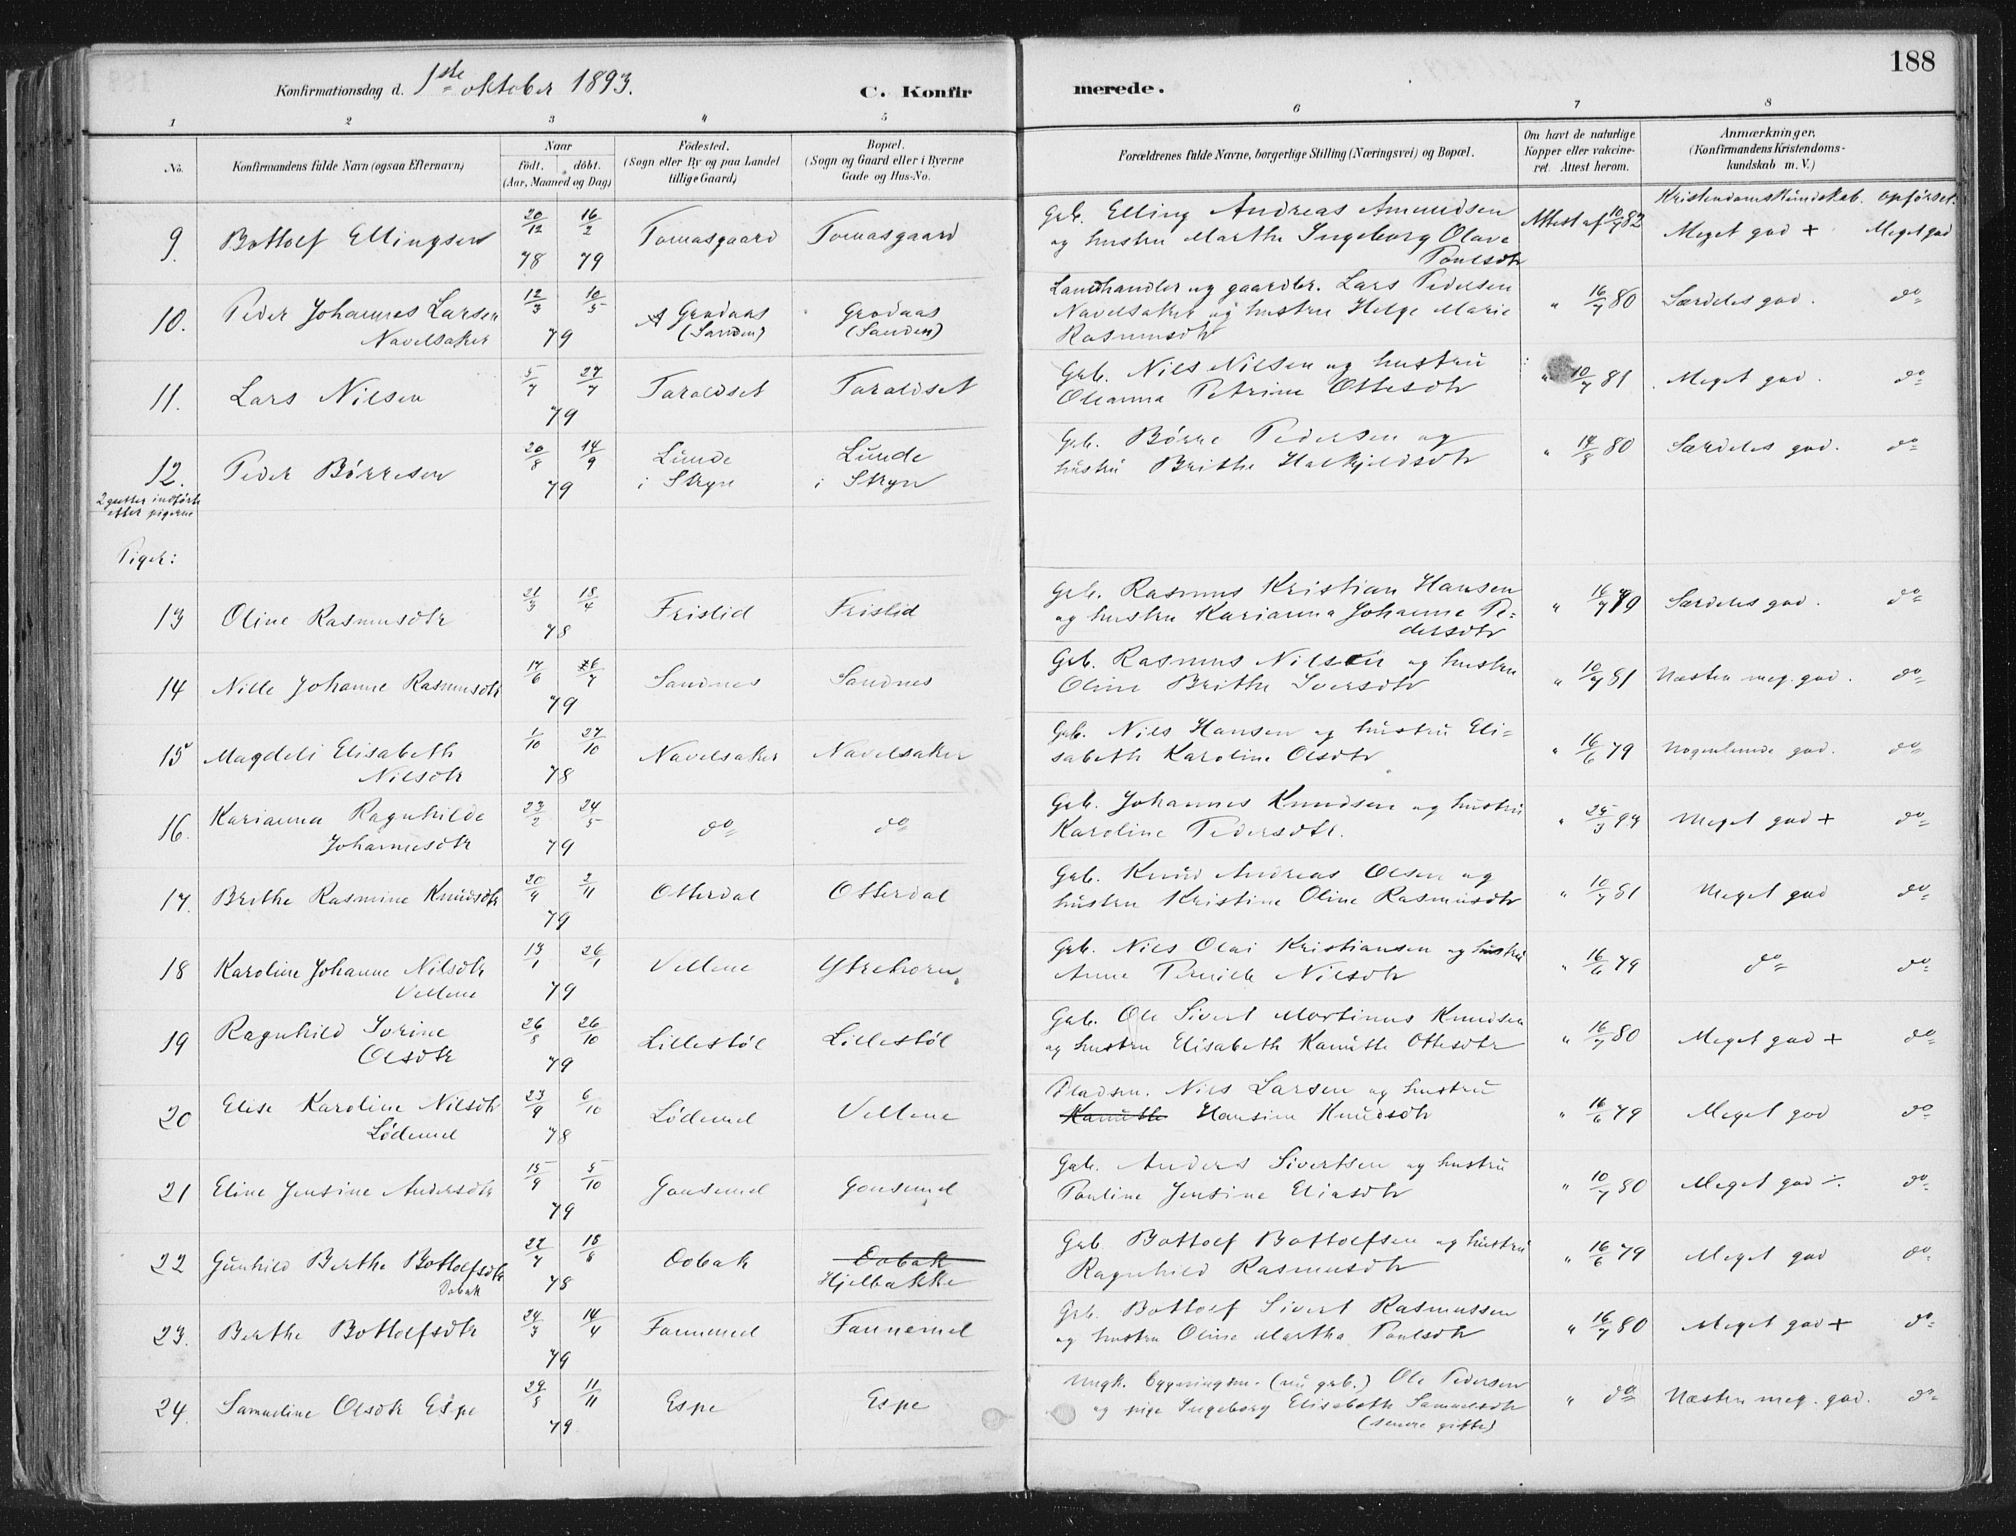 188
Konfirmationsdag d. 1ste oktober 1893.
C. Konfirmerede.
1 2 3 4 5 6 7 8
No. Konfirmandens fulde Navn (ogsaa Efternavn) Naar født. døbt. (Aar, Maaned og Dag) Fødested. (Sogn eller By og paa Landet tillige Gaard) Bopæl. (Sogn og Gaard eller i Byerne Gade og Hus-No. Forældrenes fulde Navne, borgerlige Stilling (Næringsvei) og Bopæl. Om havt de naturlige Kopper eller vakcineret. Attest herom. Anmærkninger. (Konfirmandens Kristendomskundskab m. V.)
Kristendomskundskab. Opførsel.
9. Bottolf Ellingsen 20/12 78 16/2 79 Tomasgaard Tomasgaard Grb. Elling Andreas Amundsen og hustru Marthe Ingeborg Olave Poulsdtr Attest af 10/7 82 Meget god + Meget god
10. Peder Johannes Larsen Navelsaker 12/3 10/5 79 Grodaas (Sanden) Grodaas (Sanden) Landhandler og gaardbr. Lars Pedersen Navelsaker og hustru Helge Marie Rasmusdtr " 16/7 80 Særdeles god. do
11. Lars Nilsen 5/7 27/7 79 Taraldset Taraldset Grb. Nils Nilsen og hustru Oleanna Petrine Ottesdtr " 10/7 81 Meget god. do
12. Peder Børresen 20/8 14/9 79 Lunde i Stryn Lunde i Stryn Grb. Børre Pedersen og hustru Brithe Halkjeldsdtr " 14/8 80 Særdeles god. do
2 gutter indført efter pigerne
Piger:
13 Oline Rasmusdtr 21/3 18/4 78 Frislid Frislid Grb. Rasmus Kristian Hansen og hustru Karianna Johanne Pedersdtr " 16/7 79 Særdeles god. do
14 Nille Johanne Rasmusdtr 17/6 26/7 79 Sandnes Sandnes Grb. Rasmus Nilsen og hustru Oline Brithe Iversdtr " 10/7 81 Næsten meg. god. do
15 Magdeli Elisabeth Nilsdtr 1/10 27/10 78 Navelsaker Navelsaker Grb. Nils Hansen og hustru Elisabeth Karoline Olsdtr " 16/6 79 Nogenlunde god. do
16. Karianna Ragnhilde Johannesdtr 23/2 24/5 79 do do Grb. Johannes Knudsen og hustru Karoline Pedersdtr. " 25/3 94 Meget god + do
17. Brithe Rasmine Knudsdtr 20/9 2/11 79 Otterdal Otterdal Grb. Knud Andreas Olsen og hustru Kristine Oline Rasmusdtr " 10/7 81 Meget god do
18 Karoline Johanne Nilsdtr Vellene 13/1 26/1 79 Vellene Ytrehorn. Grb. Nils Olai Kristiansen og hustru Anne Pernille Nilsdtr " 16/6 79 do do
19 Ragnhild Jorine Olsdtr 26/8 26/10 79 Lillestøl Lillestøl Grb. Ole Sivert Martinus Knudsen og hustru Elisabeth Kanutte Ottesdtr " 16/7 80 Meget god + do
20 Elise Karoline Nilsdtr Lødemel 23/9 6/10 78 Lødemel Vellene Pladsm. Nils Larsen og hustru Kanutte Hansine Knudsdtr " 16/6 79 Meget god do
21 Eline Jensine Andersdtr 15/9 5/10 79 Gausemel Gausemel Grb. Anders Sivertsen og hustru Pauline Jensine Eliasdtr " 10/7 80 Meget god ÷. do
22 Gunhild Berthe Bottolfsdtr Dobak 22/7 18/8 78 Dobak Dobak Hjelbakke Grb. Bottolf Bottolfsen og hustru Ragnhild Rasmusdtr " 16/6 79 Meget god do
23. Berthe Bottolfsdtr 24/3 14/4 79 Fannemel Fannemel Grb. Bottolf Sivert Rasmussen og hustru Oline Martha Poulsdtr " 16/7 80 Meget god + do
24. Samueline Olsdtr Espe 29/8 11/11 79 Espe Espe Ungk. bygningsm. (nu grb.) Ole Pedersen og pige Ingeborg Elisabeth Samuelsdtr (senere gifte) " do Næsten meg. god. do